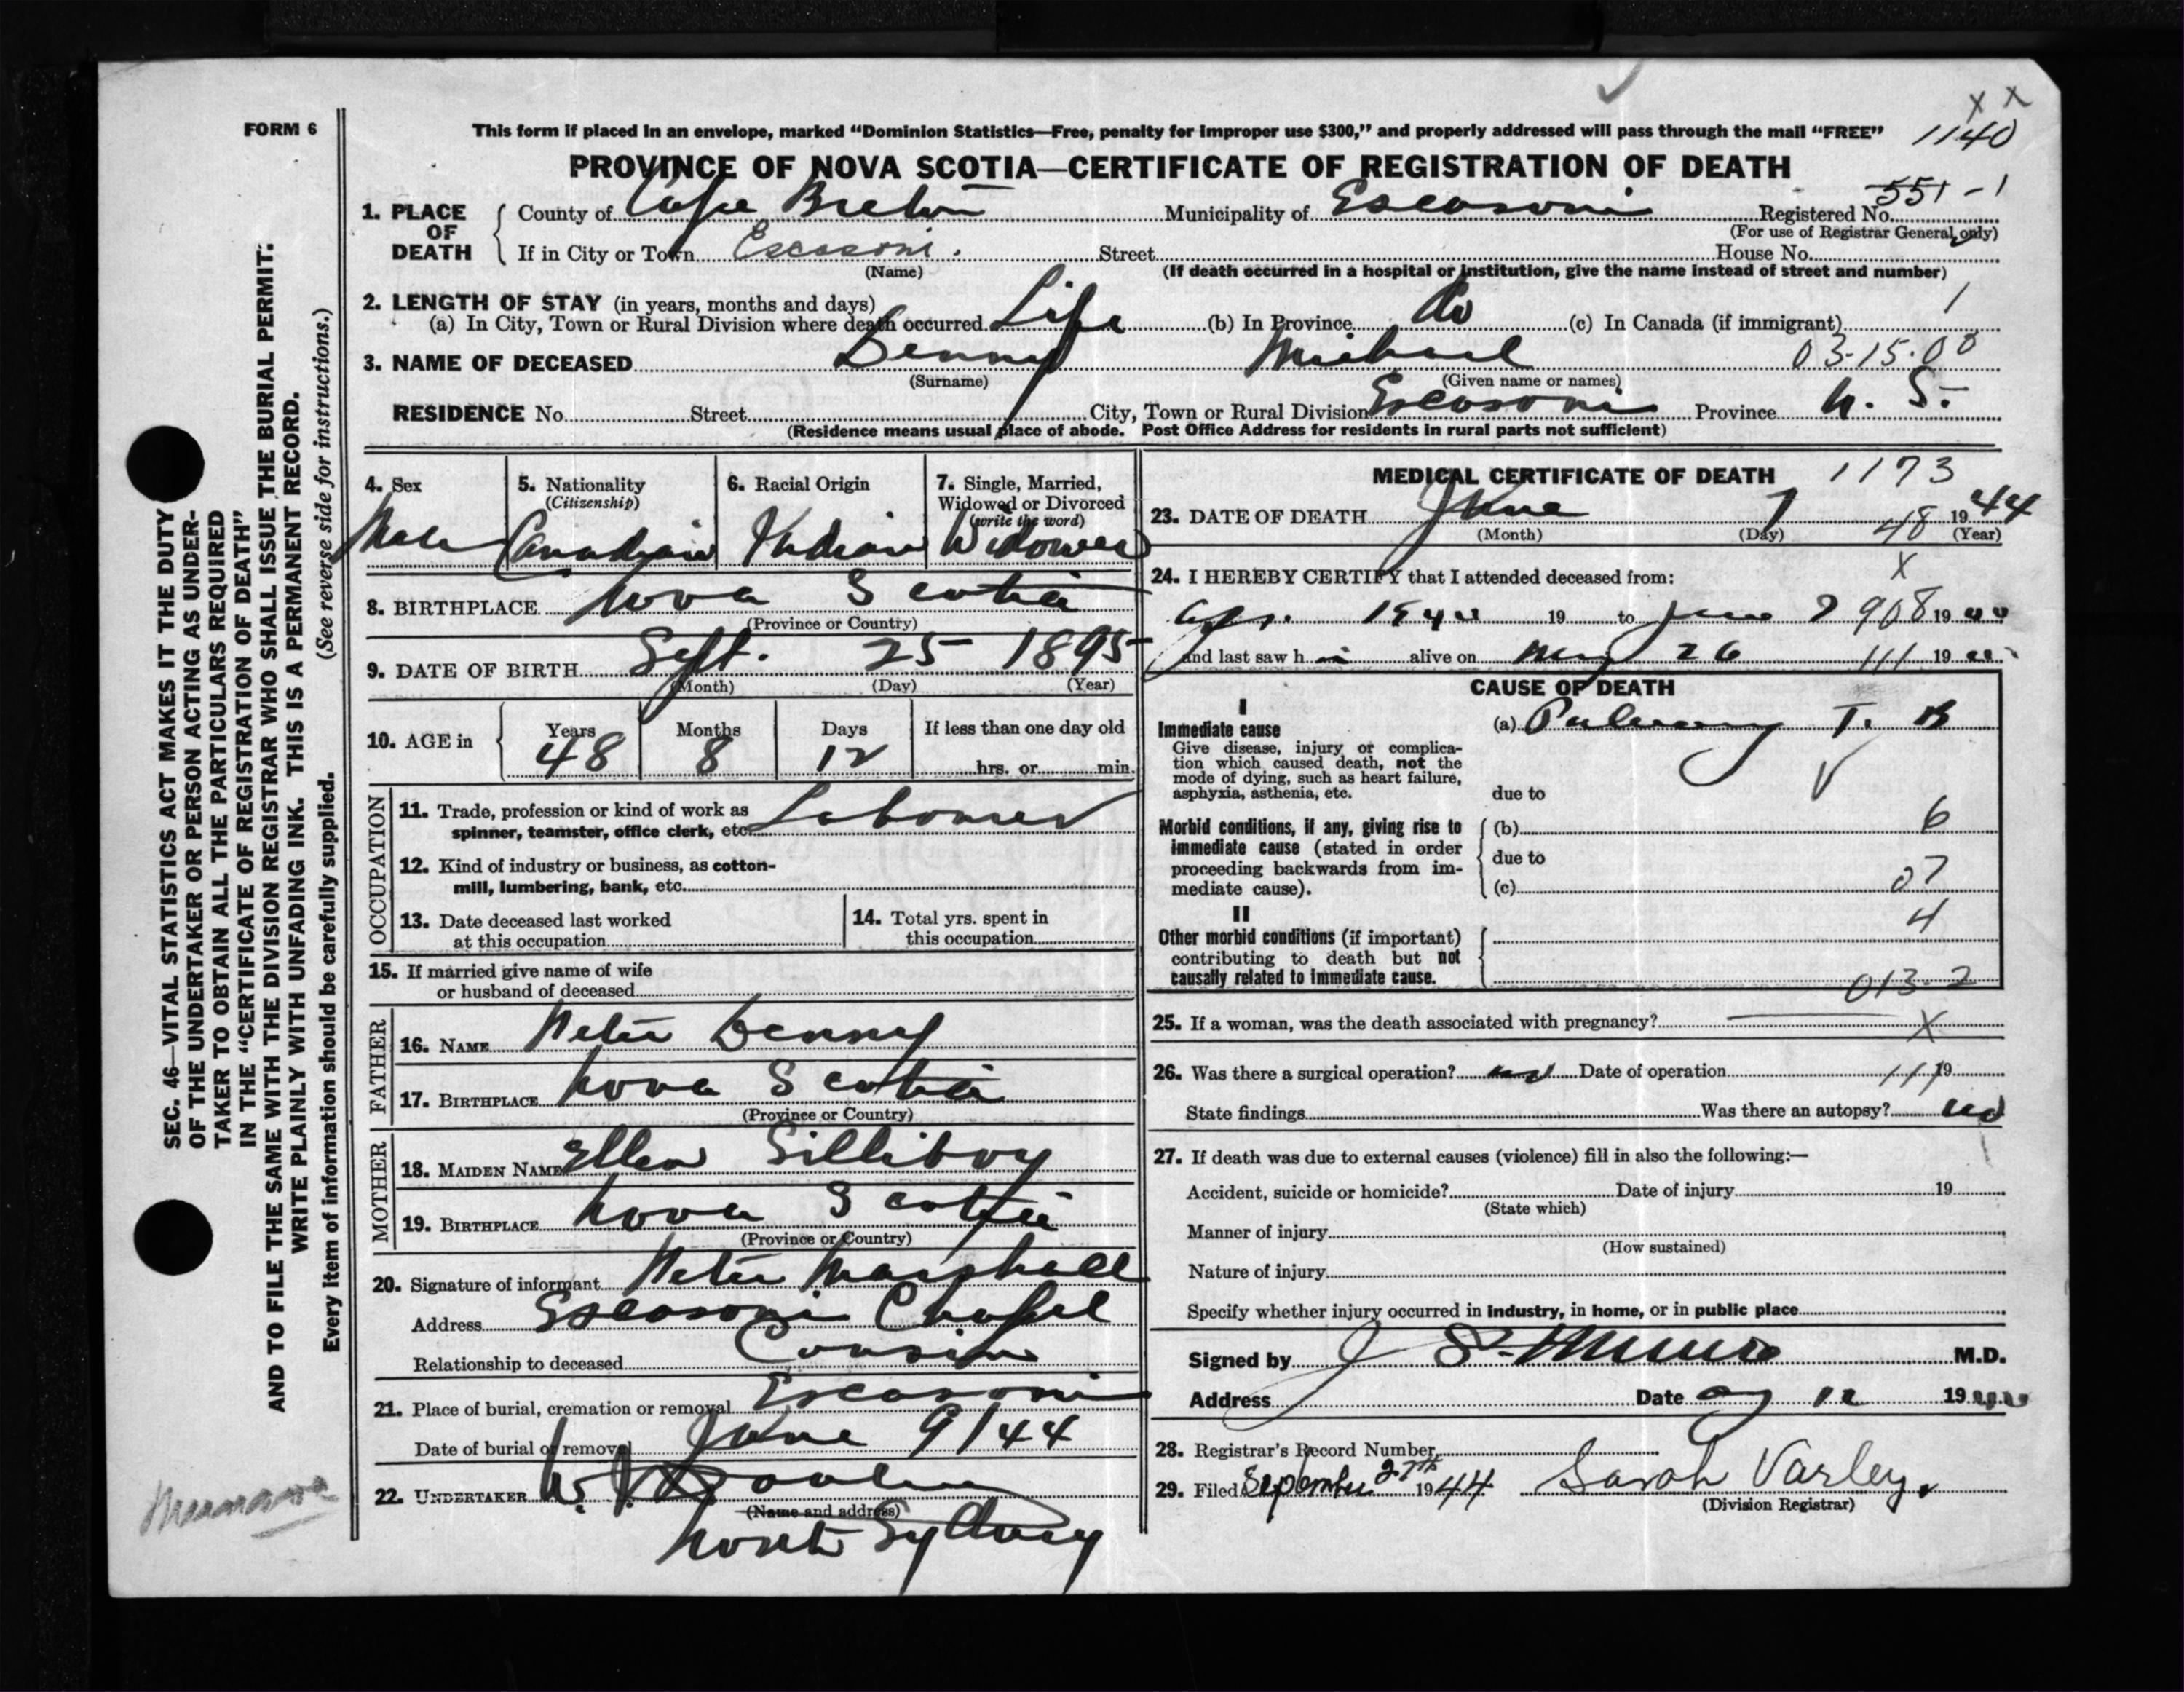 FORM 6
This form if placed in an envelope, marked “Dominion Statistics—Free, penalty for improper use $300,” and properly addressed will pass through the mail “FREE”
1140
PROVINCE OF NOVA SCOTIA—CERTIFICATE OF REGISTRATION OF DEATH
551-1
1. PLACE OF DEATH
County of Cape Breton Municipality of Escasoni Registered No.
(For use of Registrar General only)
If in City or Town Escasoni. Street House No.
(Name) (If death occurred in a hospital or institution, give the name instead of street and number)
2. LENGTH OF STAY (in years, months and days)
(a) In City, Town or Rural Division where death occurred. Life (b) In Province do (c) In Canada (if immigrant) 1
3. NAME OF DECEASED Denny Michael 03-15.00
(Surname) (Given name or names)
RESIDENCE No. Street City, Town or Rural Division Escasoni Province N. S.
(Residence means usual place of abode. Post Office Address for residents in rural parts not sufficient)
4. Sex Male
5. Nationality (Citizenship) Canadian
6. Racial Origin Indian
7. Single, Married, Widowed or Divorced (write the word) Widower
8. BIRTHPLACE Nova Scotia
(Province or Country)
9. DATE OF BIRTH Sept. 25 1895
(Month) (Day) (Year)
10. AGE in Years Months Days If less than one day old
48 8 12 hrs. or min.
OCCUPATION
11. Trade, profession or kind of work as
spinner, teamster, office clerk, etc. Labourer
12. Kind of industry or business, as cotton-
mill, lumbering, bank, etc.
13. Date deceased last worked
at this occupation
14. Total yrs. spent in
this occupation
15. If married give name of wife
or husband of deceased
FATHER
16. NAME Peter Denny
17. BIRTHPLACE Nova Scotia
(Province or Country)
MOTHER
18. MAIDEN NAME Ellen Silliboy
19. BIRTHPLACE Nova Scotia
(Province or Country)
20. Signature of informant Peter Marshall
Address Escasoni Chapel
Relationship to deceased Cousin
21. Place of burial, cremation or removal Escasoni
Date of burial or removal June 9/44
22. UNDERTAKER W. J. Dooley
(Name and address)
North Sydney
MEDICAL CERTIFICATE OF DEATH 1173
23. DATE OF DEATH June 7 1944
(Month) (Day) 48 (Year)
24. I HEREBY CERTIFY that I attended deceased from: X
Apr. 1944 19 to June 7 908 19 44
and last saw h im alive on May 26 111 19 44
CAUSE OF DEATH
I
Immediate cause (a) Pulmonary T. B
Give disease, injury or complica-
tion which caused death, not the
mode of dying, such as heart failure,
asphyxia, asthenia, etc.
due to
Morbid conditions, if any, giving rise to
immediate cause (stated in order
proceeding backwards from im-
mediate cause).
(b) 6
due to
(c) 07
II
4
Other morbid conditions (if important)
contributing to death but not
causally related to immediate cause.
013-2
25. If a woman, was the death associated with pregnancy? X
26. Was there a surgical operation? no Date of operation 111 19
State findings Was there an autopsy? no
27. If death was due to external causes (violence) fill in also the following:—
Accident, suicide or homicide? Date of injury 19
(State which)
Manner of injury
(How sustained)
Nature of injury
Specify whether injury occurred in industry, in home, or in public place
Signed by J S. Munro M.D.
Address Date Aug 12 1944
28. Registrar's Record Number
29. Filed September 27th 1944 Sarah Varley.
(Division Registrar)
SEC. 46—VITAL STATISTICS ACT MAKES IT THE DUTY
OF THE UNDERTAKER OR PERSON ACTING AS UNDER-
TAKER TO OBTAIN ALL THE PARTICULARS REQUIRED
IN THE “CERTIFICATE OF REGISTRATION OF DEATH”
AND TO FILE THE SAME WITH THE DIVISION REGISTRAR WHO SHALL ISSUE THE BURIAL PERMIT.
WRITE PLAINLY WITH UNFADING INK. THIS IS A PERMANENT RECORD.
Every item of information should be carefully supplied. (See reverse side for instructions.)